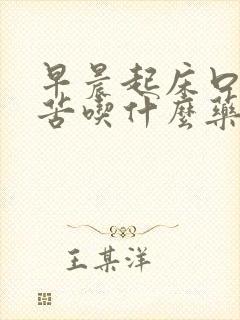 早晨起床口
苦喫什麼藥
王某洋